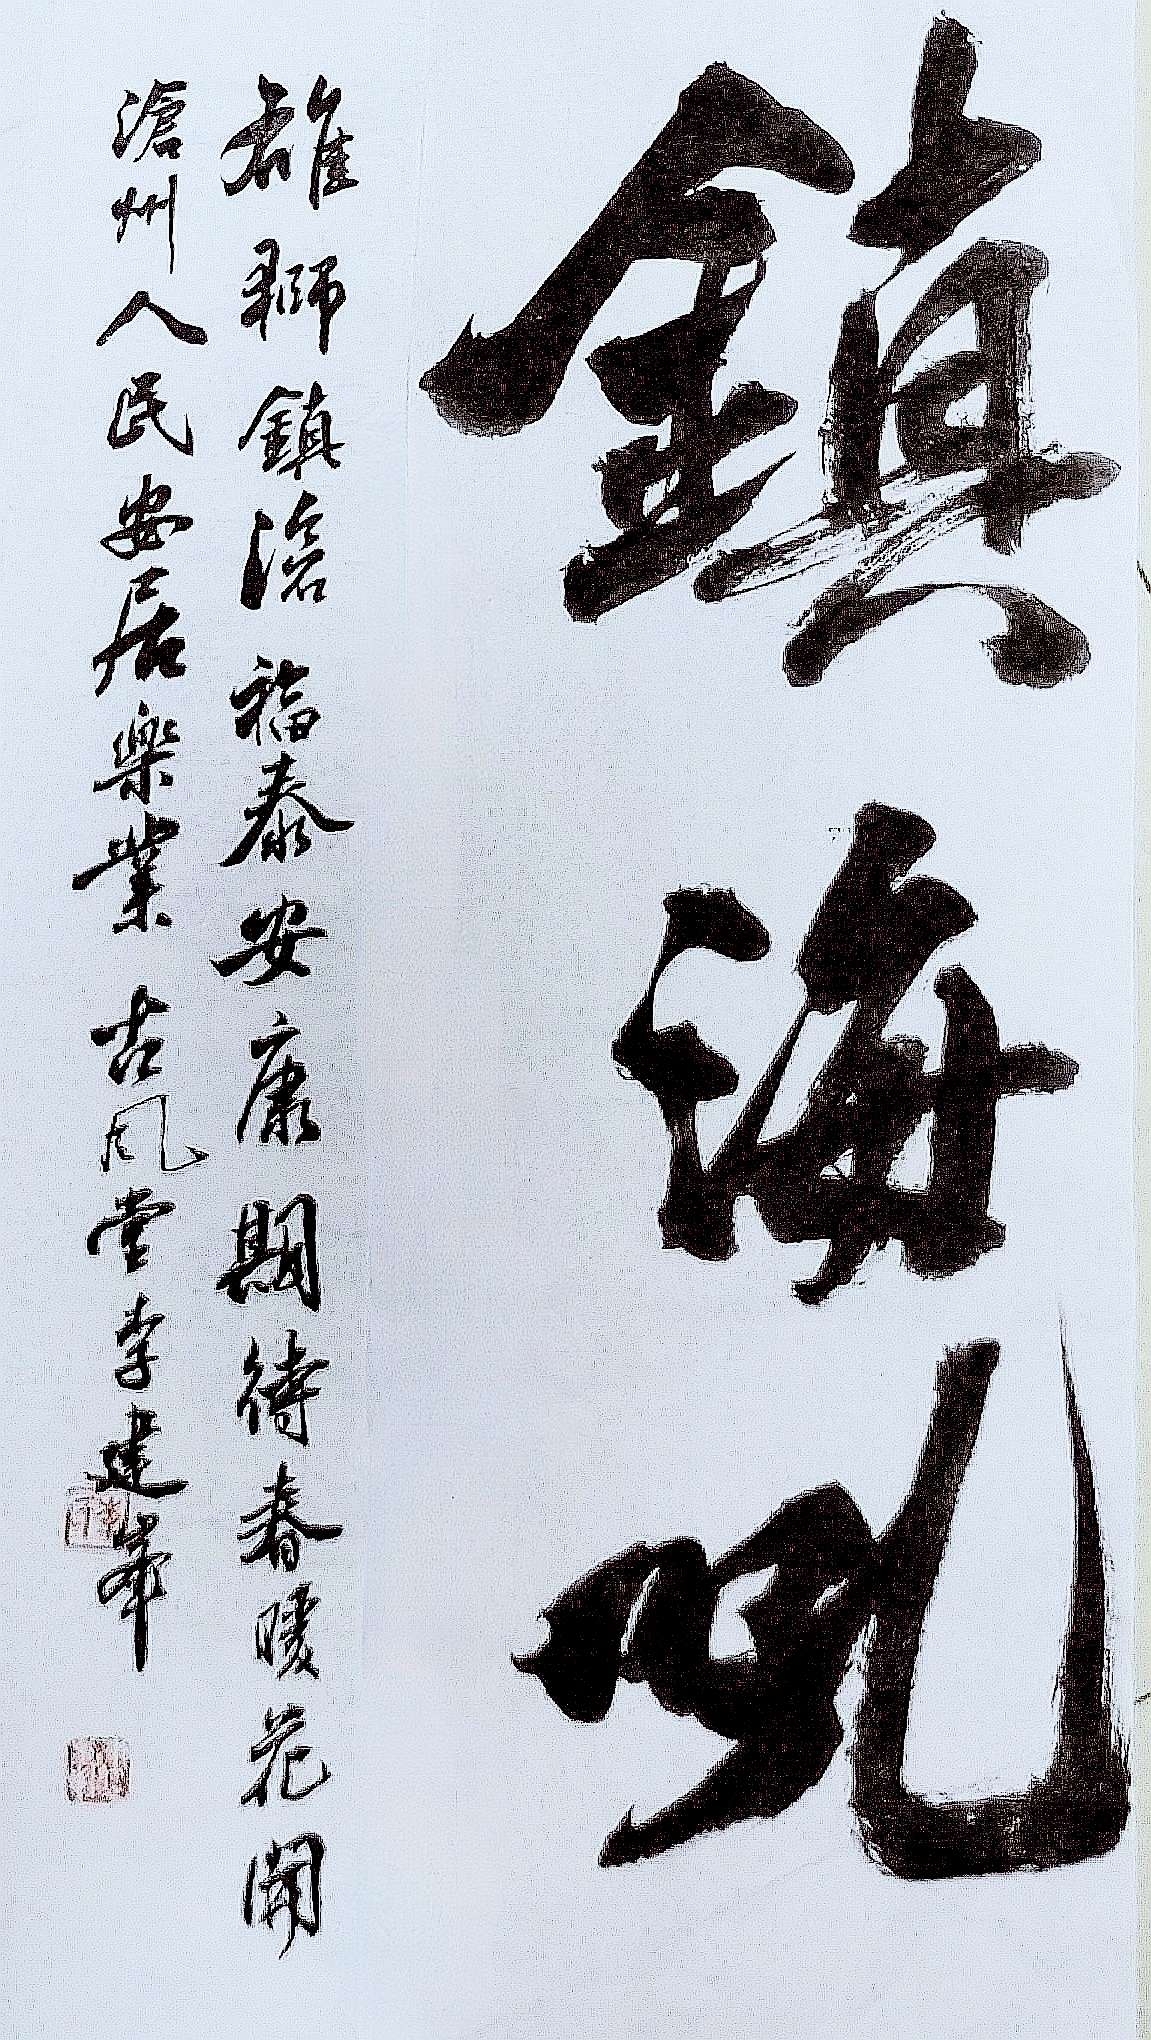 鎮海吼
雄獅鎮滄福泰安康期待春暖花開
滄州人民安居樂業古风堂李建峯